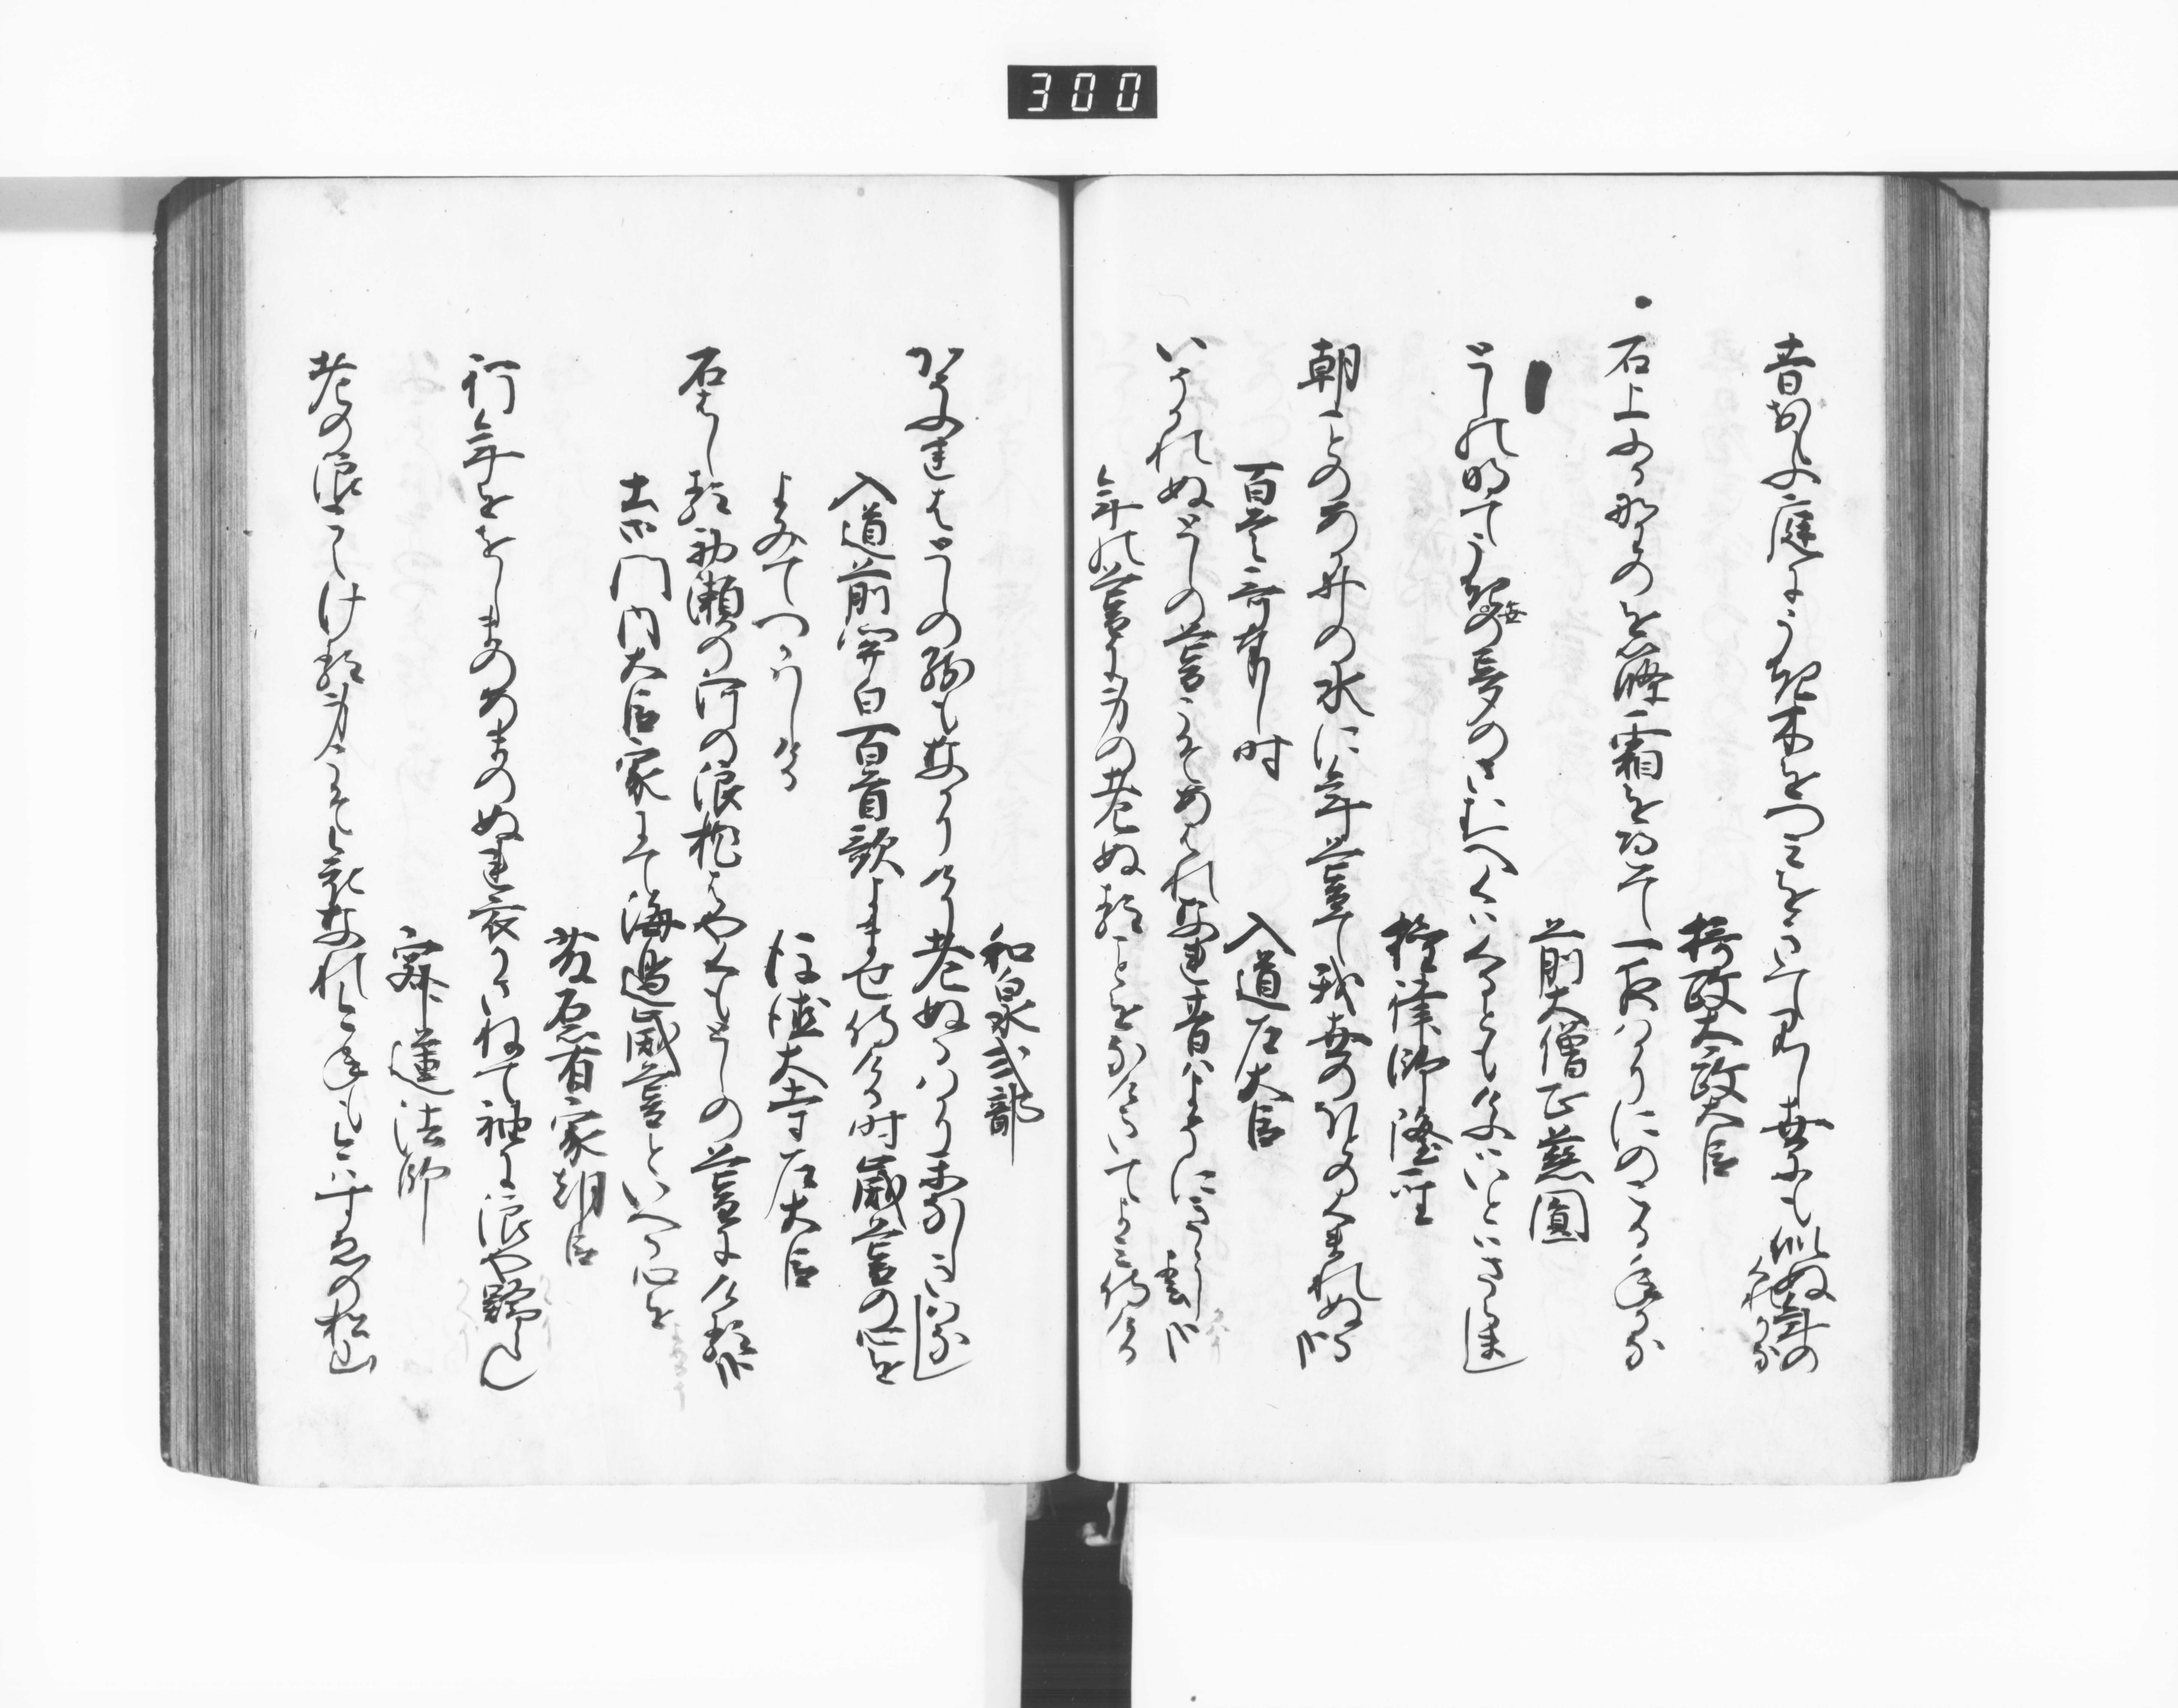 昔おもふ庭にうき木をつみをきて見し世にも似ぬ年の
くれかな
摂政太政大臣
石上ふる野のをさ霜をへて一夜はかりにのこる年かな
前大僧正慈圓
としの明てうき世の夢のさむへくはくるともけふはいとはさらまし
権律師隆聖
朝ことのあか井の水に年暮て我世のほとのくまれぬる哉
百首哥奉りし時
入道左大臣
いそかれぬとしの暮こそあはれなれ昔はよそにきゝし春かは
年の暮に身の老ぬることをなけきてよみ侍ける
和泉式部
かそふれはとしの残もなかりけり老ぬるはかりかなしきはなし
入道前関白百首歌よませ侍ける時歳暮の心を
よみてつかはしける
後徳大寺左大臣
石はしる初瀬の河の浪枕はやくもとしの暮にける哉
土御門内大臣家にて海邊歳暮といへる心を
藤原有家朝臣
行年ををしまのあまのぬれ衣かさねて袖に浪や懸らん
寂蓮法師
老の浪こえける身こそ哀なれことしも今は末の松山
300